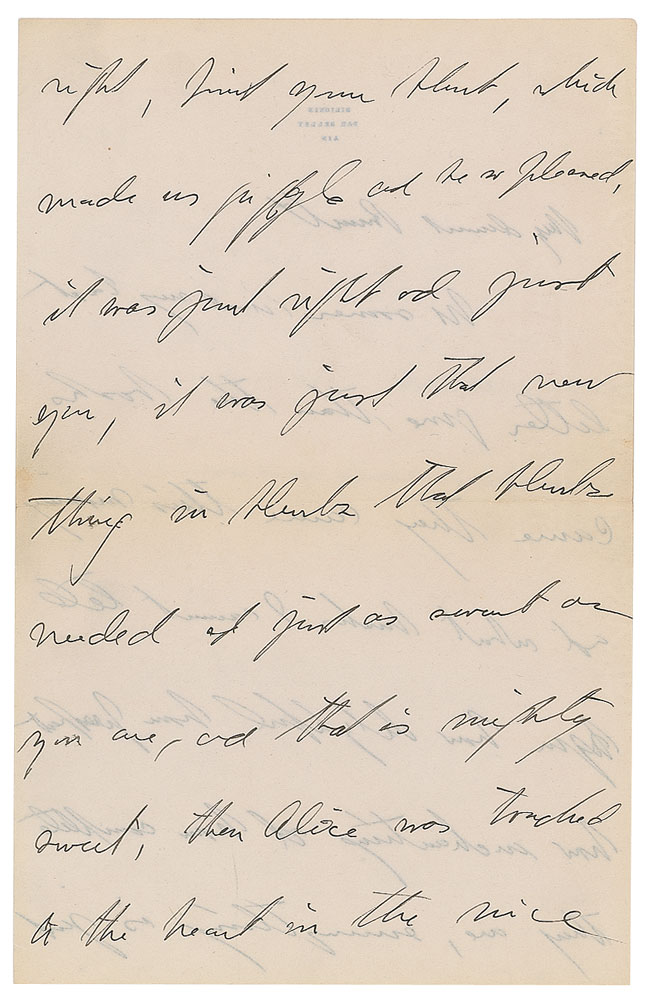 right, first your blurb, which
made us giggle and be so pleased,
it was just right and just
you, it was just that new
thing in blurbs that blurbs
needed and just as sweet as
you are, and that is mighty
sweet, then Alice was touched
to the heart in the nice